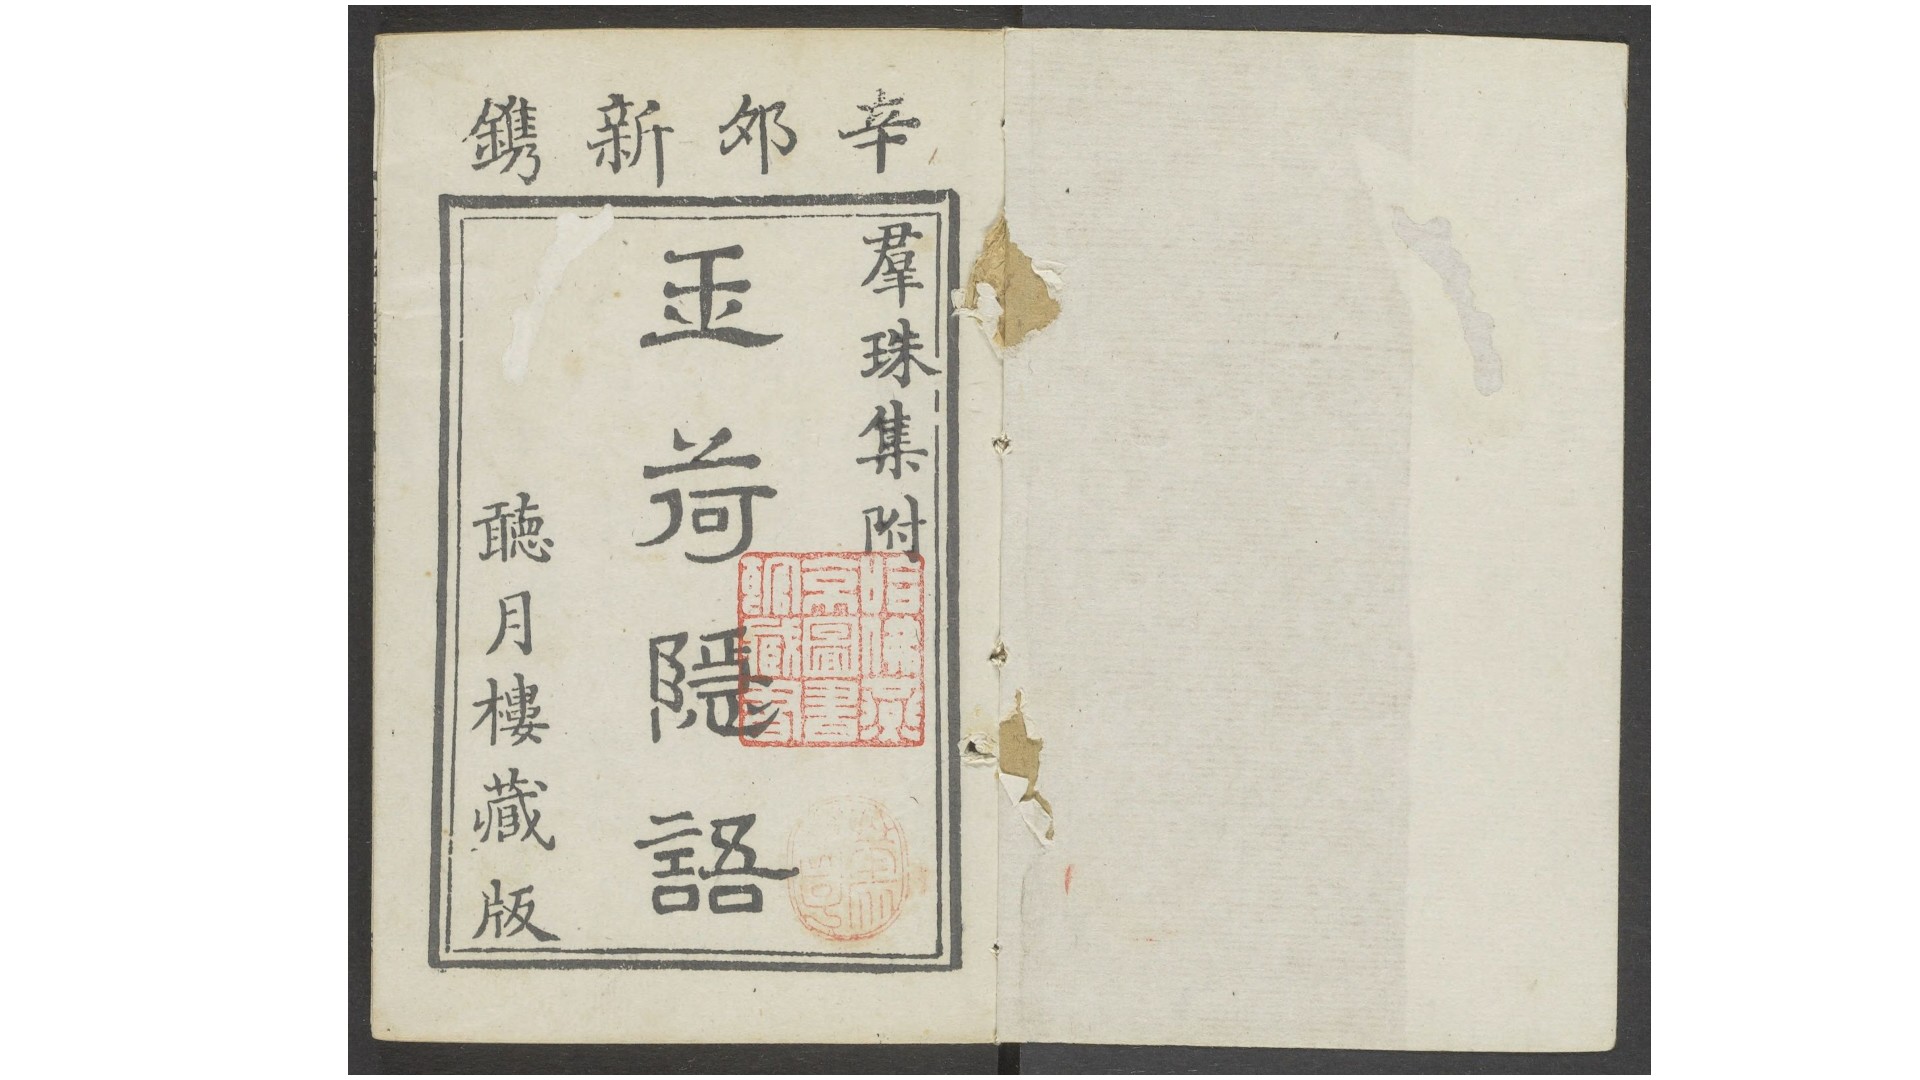 辛夘新鐫
羣珠集附
玉荷隱語
聽月樓藏版
哈佛燕
京圖書
館藏